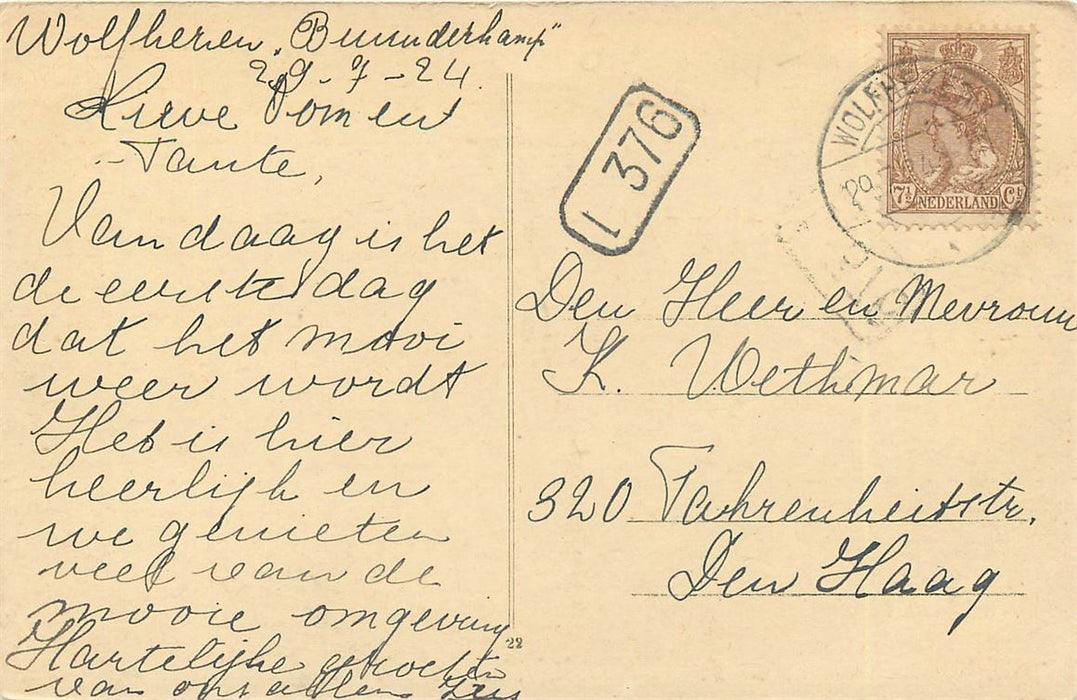 Wolfhezen „Buunderkamp"
29-7-24
Lieve Oom en
Tante,
Vandaag is het
de eerste dag
dat het mooi
weer wordt
Het is hier
heerlijk en
we genieten
veel van de
mooie omgeving
Hartelijke groeten
van ons allen Zus
L 376
WOLFHEZE
29
7½ NEDERLAND Ct
Den Heer en Mevrouw
K. Wethmar
320 Fahrenheitstr.
Den Haag
22